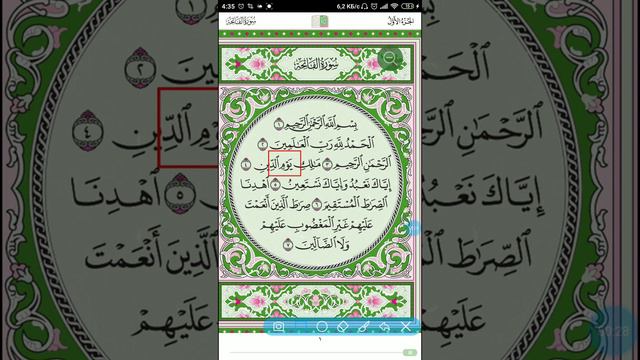 4:35 6,2 КБ/с
سورة الفاتحة الجزء الأول
سُورَةُ الْفَاتِحَةِ
بِسْمِ اللَّهِ الرَّحْمَٰنِ الرَّحِيمِ ١
الْحَمْدُ لِلَّهِ رَبِّ الْعَالَمِينَ ٢
الرَّحْمَٰنِ الرَّحِيمِ ٣ مَالِكِ يَوْمِ الدِّينِ ٤
إِيَّاكَ نَعْبُدُ وَإِيَّاكَ نَسْتَعِينُ ٥ اهْدِنَا
الصِّرَاطَ الْمُسْتَقِيمَ ٦ صِرَاطَ الَّذِينَ أَنْعَمْتَ
عَلَيْهِمْ غَيْرِ الْمَغْضُوبِ عَلَيْهِمْ
وَلَا الضَّالِّينَ ٧
١